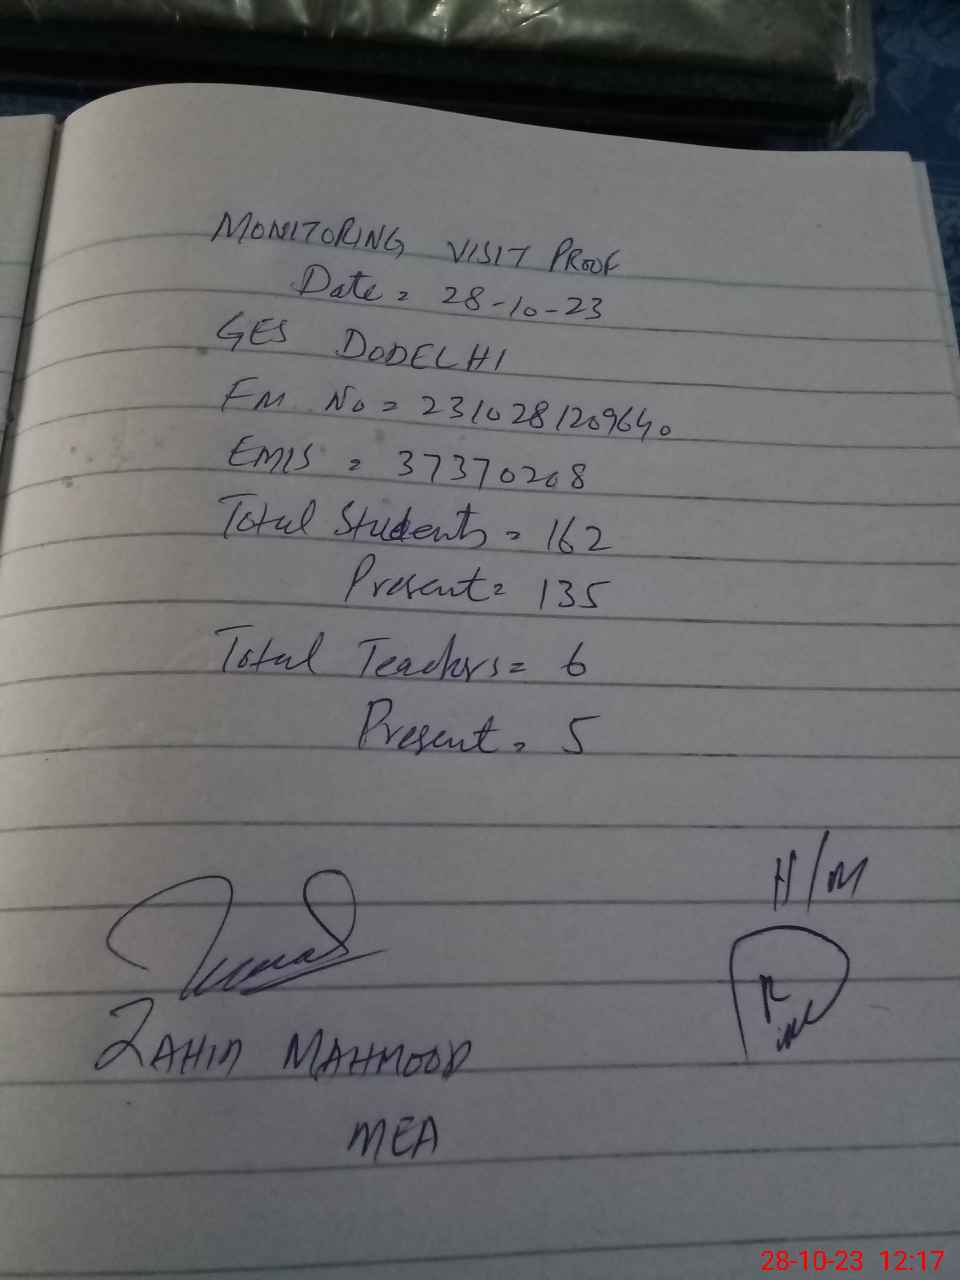 MONITORING VISIT PROOF
Date = 28-10-23
GES DODELHI
EM No = 2310281209640
EMIS = 37370208
Total Students = 162
Present = 135
Total Teachers = 6
Present = 5
H/M
MAHMOOD
MEA
28-10-23 12:17